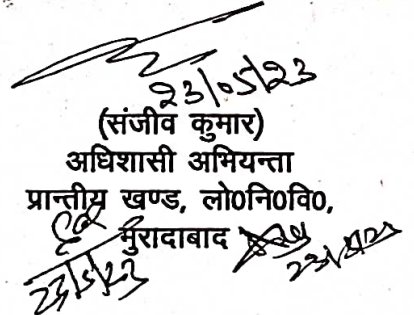 23/05/23
(संजीव कुमार)
अधिशासी अभियन्ता
प्रान्तीय खण्ड, लो0नि0वि0,
मुरादाबाद
23/5/23